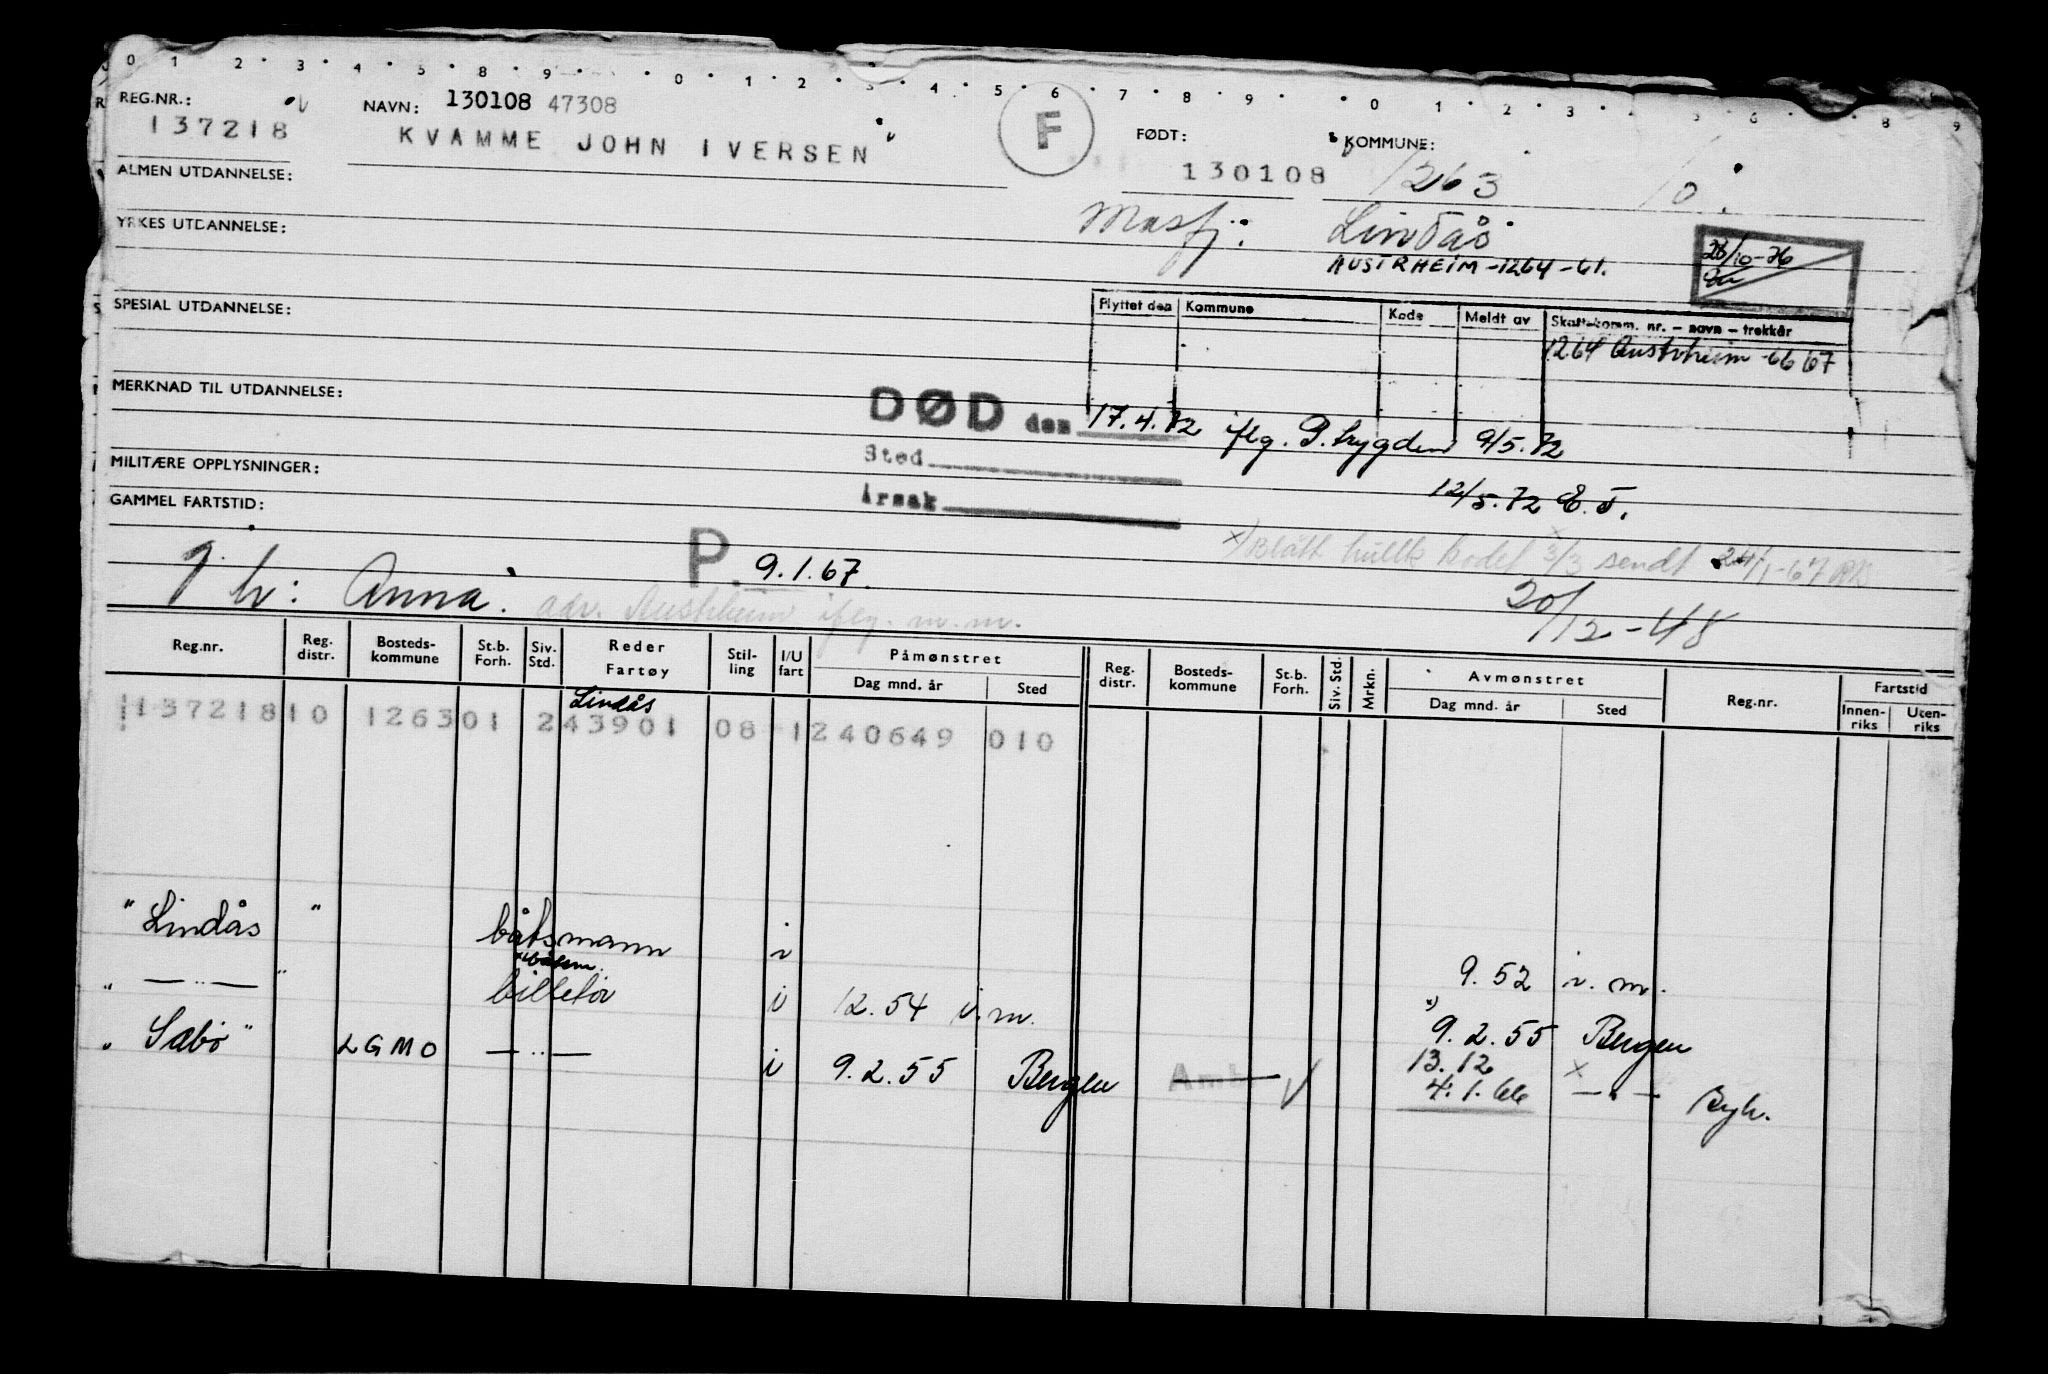 0 1 2 • 3 • 4 • 5 • 8 • 9 • • 0 • 1 • 2 • 3 • 4 • 5 • 6 • 7 • 8 • 9 • • 0 • 1 • 2 • 3 • 8 • 9
REG.NR.: NAVN: 130108 47308
137218 KVAMME JOHN IVERSEN F FØDT: 130108 KOMMUNE: 1263 10
ALMEN UTDANNELSE:
Masfj: Lindås
YRKES UTDANNELSE:
AUSTRHEIM -1264 -61.
28/10-76
SPESIAL UTDANNELSE:
Flyttet den Kommune Kode Meldt av Skattekomm. nr. – navn – trekkår
1264 Austrheim -66 67
MERKNAD TIL UTDANNELSE:
DØD den 17.4.72 iflg. P. trygden 9/5.72
Sted
MILITÆRE OPPLYSNINGER:
Årsak 12/5.72 E.T.
GAMMEL FARTSTID:
P. 9.1.67. x) Blått hullk kodet 3/3 sendt 24/1-67
g. h: Anna. adr. Austrheim iflg. m.m. 20/12-48
Reg.nr. Reg. distr. Bosteds-kommune St.b. Forh. Siv. Std. Reder Fartøy Stil-ling I/U fart Påmønstret Dag mnd. år Sted Reg. distr. Bosteds-kommune St.b. Forh. Siv. Std. Mrkn. Avmønstret Dag mnd. år Sted Reg.nr. Fartstid Innen-riks Uten-riks
Lindås
137218 10 126301 243901 08 1240649 010
" Lindås " båtsmann i 9.52 i.m.
" — " — " billetør i 12.54 i.m. x) 9.2.55 Bergen
" Sæbø " LGMO — " — i 9.2.55 Bergen Amb 13.12 x
4.1.66 — " — Byh.